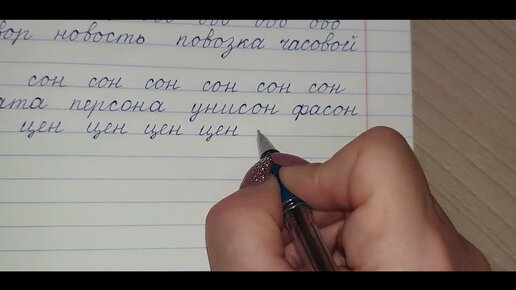 новость повозка часовой
сон сон сон сон сон сон
персона унисон фасон
цен цен цен цен